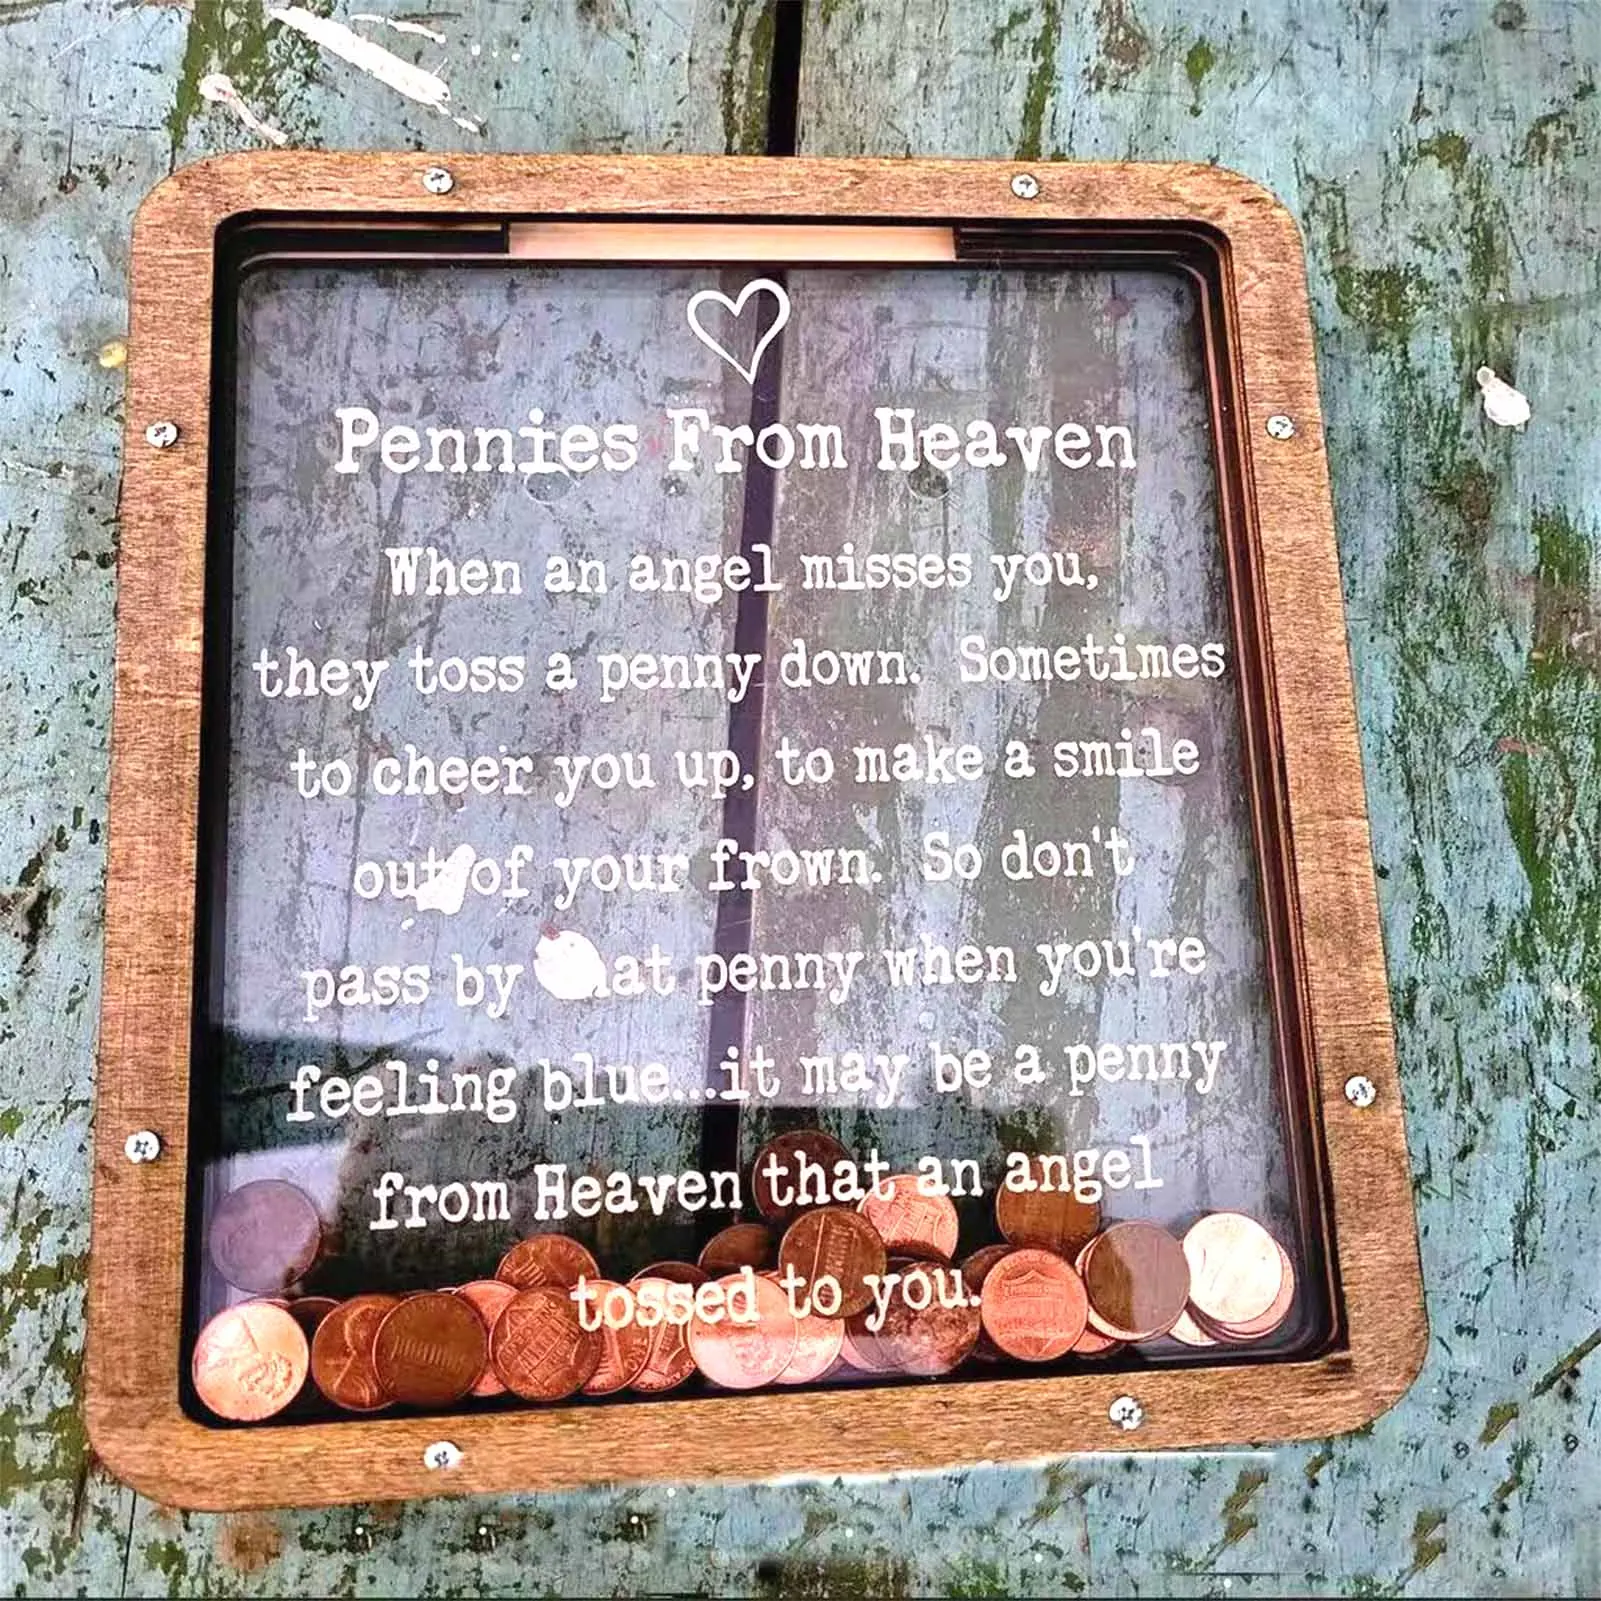 Pennies From Heaven
When an angel misses you,
they toss a penny down. Sometimes
to cheer you up, to make a smile
out of your frown. So don't
pass by that penny when you're
feeling blue...it may be a penny
from Heaven that an angel
tossed to you.